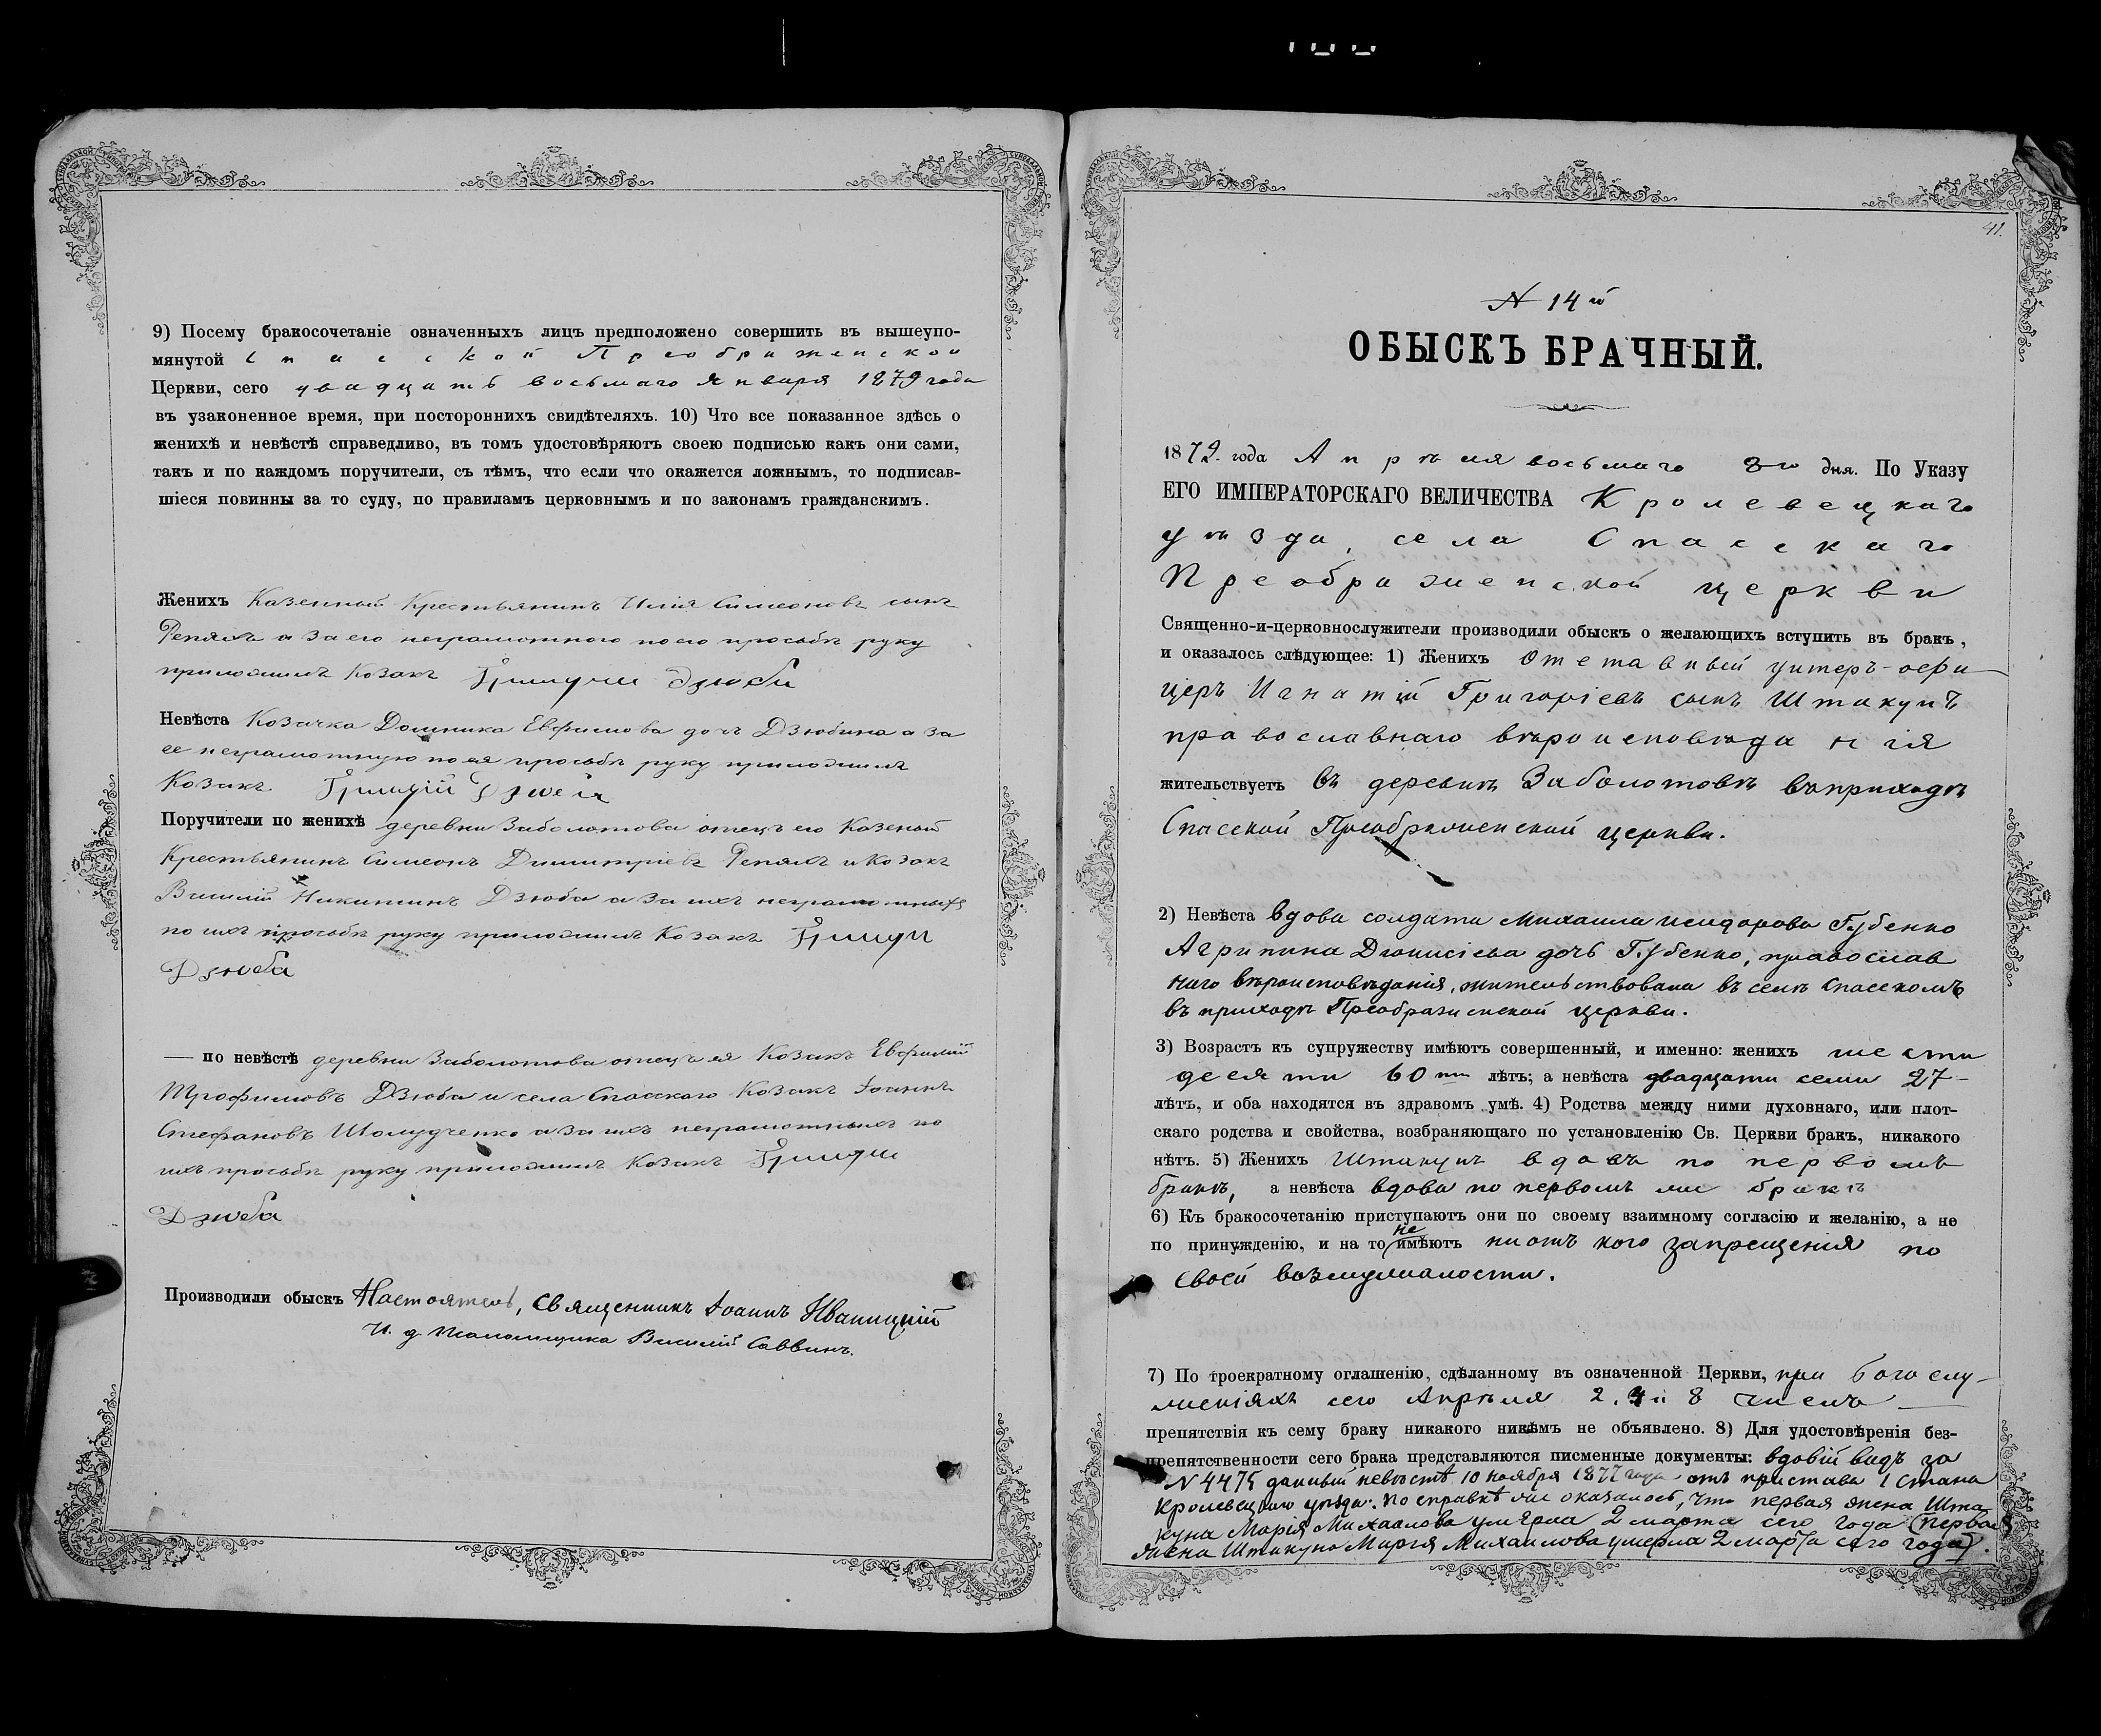 9) Посему бракосочетаніе означенныхъ лицъ предположено совершить въ вышеупо-
мянутой Спасской Преображенской
Церкви, сего двадцать восьмаго Января 1879 года
въ узаконенное время, при постороннихъ свидѣтеляхъ. 10) Что все показанное здѣсь о
женихѣ и невѣстѣ справедливо, въ томъ удостовѣряютъ своею подписью какъ они сами,
такъ и по каждомъ поручители, съ тѣмъ, что если что окажется ложнымъ, то подписав-
шіеся повинны за то суду, по правиламъ церковнымъ и по законамъ гражданскимъ.
Женихъ Казенный Крестьянинъ Илія Симеоновъ сынъ
Репяхъ а за его неграмотного по его просьбѣ руку
приложилъ Козакъ Дзюба
Невѣста Козачка Домника Евфимова дочь Дзюбина а за
ее неграмотную по ея просьбѣ руку приложилъ
Козакъ Грицій Дзюба
Поручители по женихѣ деревни Заболотова отецъ его Казеный
Крестьянинъ Симеонъ Димитріевъ Репяхъ и Козакъ
Василій Никитинъ Дзюба а за ихъ неграмотныхъ
по ихъ просьбѣ руку приложилъ Козакъ
Дзюба
— по невѣстѣ деревни Заболотова отецъ ея Козакъ Евфимій
Трофимовъ Дзюба и села Спасского Козакъ Іоаннъ
Стефановъ Шолудченко а за ихъ неграмотныхъ по
ихъ просьбѣ руку приложилъ Козакъ
Дзюба
Производили обыскъ Настоятель, Священникъ Іоаннъ Иваницкій
И. д. Псаломщика Василій Саввинъ.
41.
N 14й
ОБЫСКЪ БРАЧНЫЙ.
1879. года Апрѣля восьмаго 8го дня. По Указу
ЕГО ИМПЕРАТОРСКАГО ВЕЛИЧЕСТВА Кролевецкаго
уѣзда, села Спасскаго
Преображенской церкви
Священно-и-церковнослужители производили обыскъ о желающихъ вступить въ бракъ,
и оказалось слѣдующее: 1) Женихъ Отставный унтеръ-офи
церъ Игнатій Григоріевъ сынъ Штакунъ
православнаго вѣроисповѣданія
жительствуетъ въ деревнѣ Заболотовѣ въ приходѣ
Спасской Преображенской церкви.
2) Невѣста вдова солдата Михаила Исидорова Губенко
Агрипина Діонисіева дочь Губенко, православ
наго вѣроисповѣданія, жительствовала въ селѣ Спасскомъ
въ приходѣ Преображенской церкви.
3) Возрастъ къ супружеству имѣютъ совершенный, и именно: женихъ шести
десяти 60ти лѣтъ; а невѣста двадцати семи 27-
лѣтъ, и оба находятся въ здравомъ умѣ. 4) Родства между ними духовнаго, или плот-
скаго родства и свойства, возбраняющаго по установленію Св. Церкви бракъ, никакого
нѣтъ. 5) Женихъ Штакунъ вдовъ по первомъ
бракѣ, а невѣста вдова по первомъ же бракѣ
6) Къ бракосочетанію приступаютъ они по своему взаимному согласію и желанію, а не
по принужденію, и на то не имѣютъ ни отъ кого запрещенія по
своей возмужалости.
7) По троекратному оглашенію, сдѣланному въ означенной Церкви, при богослу-
женіяхъ сего Апрѣля 2, и 8 числъ
препятствія къ сему браку никакого никѣмъ не объявлено. 8) Для удостовѣренія без-
препятственности сего брака представляются писменные документы: вдовій видъ за
N 4475 данный невѣстѣ 10 ноября 1877 года отъ пристава 1 Стана
Кролевецкаго уѣзда. По справкѣ же оказалось, что первая жена Шта
куна Марія Михаилова умерла 2 марта сего года (первая
жена Штакуна Марія Михаилова умерла 2 марта сего года).